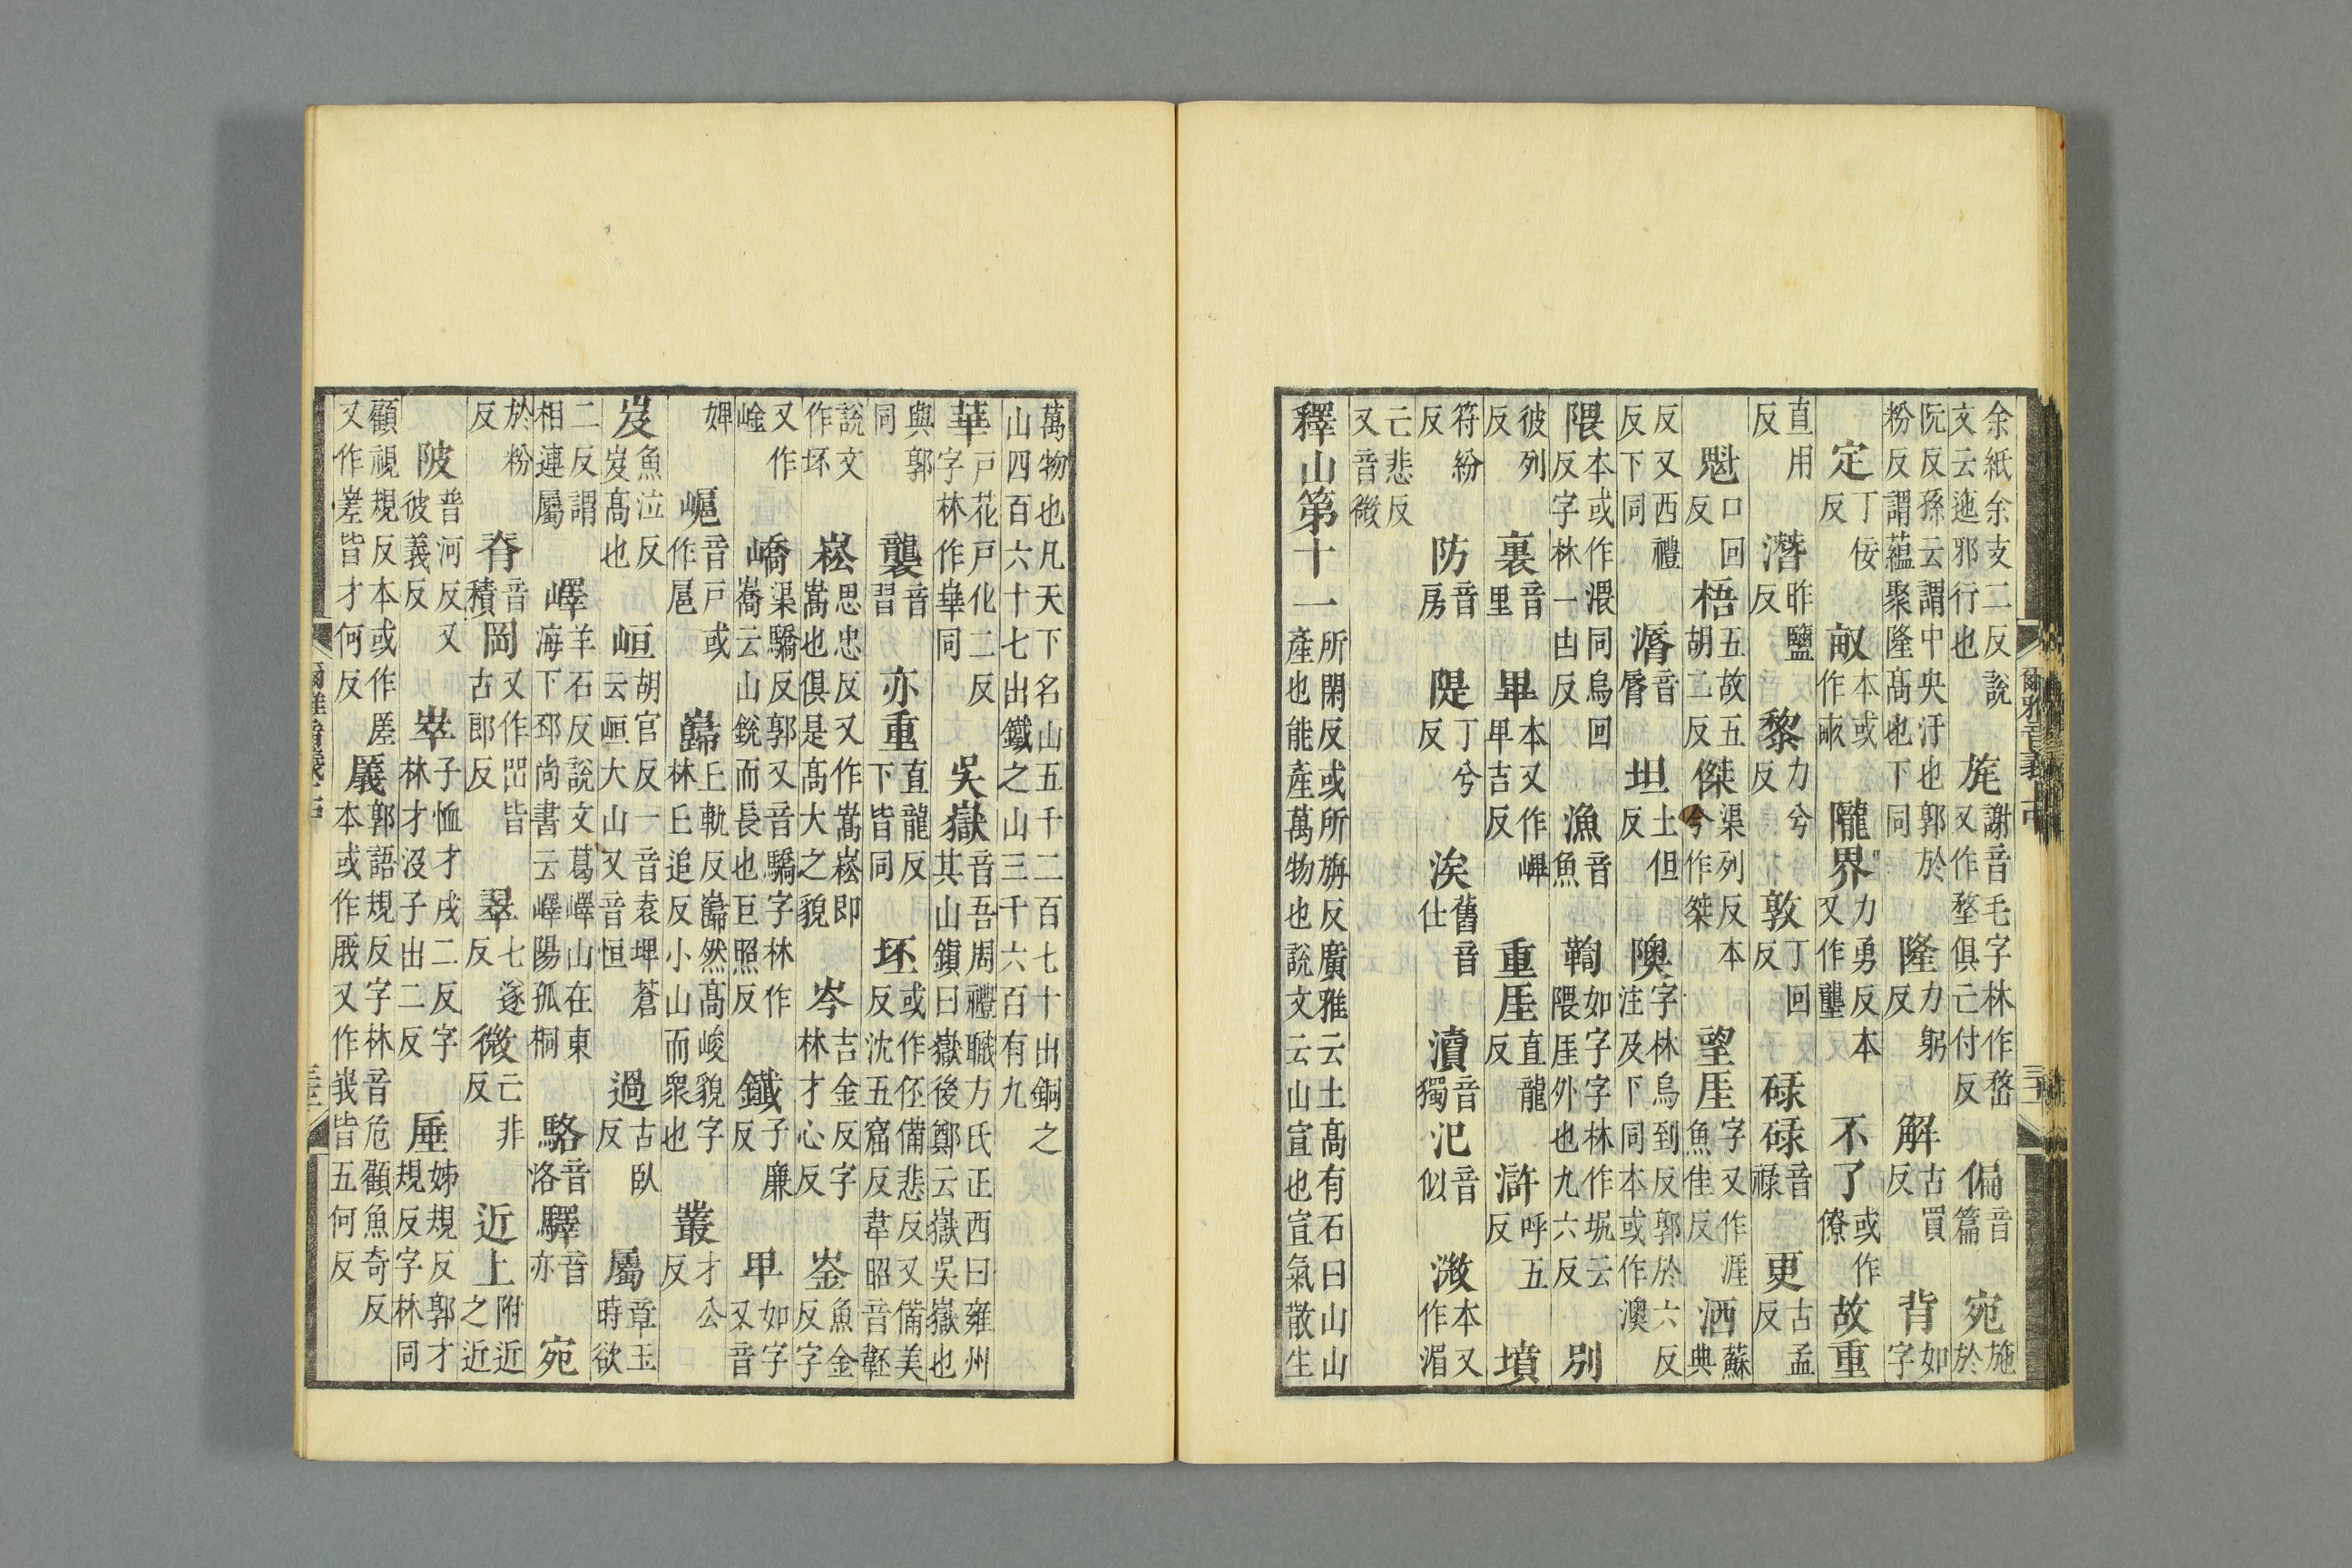 余紙余支二反說
文云迤邪行也
旄
謝音毛字林作嶅
又作堥俱亡付反
偏
音
篇
宛
施
於
阮反孫云謂中央汙也郭於
粉反謂蘊聚隆高也下同
隆
力躬
反
解
古買
反
背
如
字
定
丁佞
反
㽗
本或
作畞
隴界
力勇反本
又作壟
不了
或作
僚
故重
直用
反
潛
昨鹽
反
黎
力兮
反
敦
丁回
反
碌碌
音
祿
更
古孟
反
魁
口回
反
梧
五故五
胡二反
傑
渠列反本
今作桀
望厓
字又作涯
魚佳反
洒
蘇
典
反又西禮
反下同
漘
音
脣
坦
土但
反
隩
字林烏到反郭於六反
注及下同本或作澳
隈
本或作渨同烏回
反字林一由反
漁
音
魚
鞫
如字字林作坭云
隈厓外也九六反
別
彼列
反
裏
音
里
畢
本又作㟀
卑吉反
重厓
直龍
反
滸
呼五
反
墳
符紛
反
防
音
房
隄
丁兮
反
涘
舊音
仕
瀆
音
獨
汜
音
似
溦
本又
作湄
亡悲反
又音微
釋山第十一
所閑反或所旃反廣雅云土高有石曰山山
產也能產萬物也說文云山宣也宣氣散生
萬物也凡天下名山五千二百七十出銅之
山四百六十七出鐵之山三千六百有九
華
戶花戶化二反
字林作崋同
吳嶽
音吾周禮職方氏正西曰雍州
其山鎮曰嶽後鄭云嶽吳嶽也
與郭
同
襲
音
習
亦重
直龍反
下皆同
坯
或作伾備悲反又備美
反沈五窟反韋昭音䡟
說文
作坏
崧
思忠反又作嵩崧卽
嵩也俱是高大之貌
岑
吉金反字
林才心反
崟
魚金
反字
又作
崯
嶠
渠驕反郭又音驕字林作
蕎云山銳而長也巨照反
鐵
子廉
反
卑
如字
又音
婢
㟴
音戶或
作扈
巋
丘軌反巋然高峻貌字
林丘追反小山而衆也
叢
才公
反
岌
魚泣反
岌高也
峘
胡官反一音袁埤蒼
云峘大山又音恒
過
古臥
反
屬
章玉
時欲
二反謂
相連屬
嶧
羊石反說文葛嶧山在東
海下邳尚書云嶧陽孤桐
駱
音
洛
驛
音
亦
宛
於粉
反
脊
音
積
岡
又作㟠皆
古郎反
翠
七遂
反
微
亡非
反
近上
附近
之近
陂
普河反又
彼義反
崒
子恤才戌二反字
林才沒子出二反
厜
姊規反郭才
規反字林同
顧視規反本或作㕒
又作嵳皆才何反
㕒
郭語規反字林音危顧魚奇反
本或作㕎又作峩皆五何反